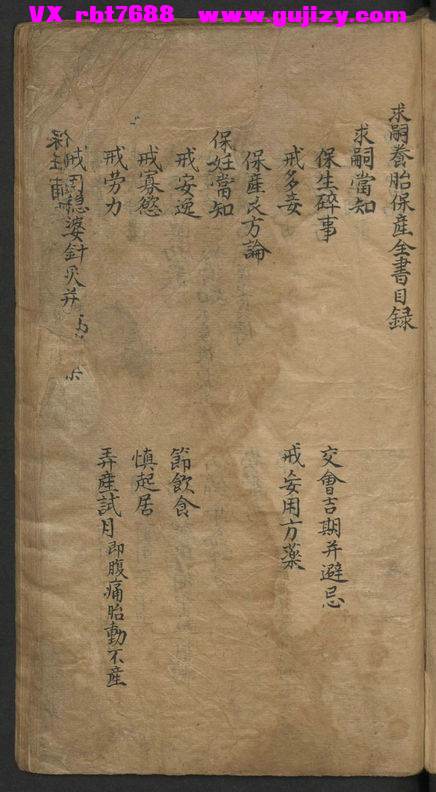 VX rbt7688 www.gujizy.com
求嗣養胎保產全書目録
求嗣當知
保生碎事
交會吉期并避忌
戒多妾
戒妄用方藥
保產民方論
保妊當知
戒安逸
節飲食
戒寡慾
慎起居
戒勞力
弄產試月即腹痛胎動不產
戒用穩婆針灸并